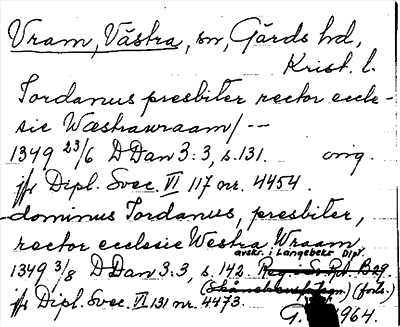 Vram, Västra, sn, Gärds hd,
Krist. l.
Iordanus presbiter rector eccle-
sie Wæstrawraam/--
1349 23/6 DDan 3:3, s. 131. orig.
jfr Dipl. Svec. VI 117 nr. 4454.
-dominus Iordanus, presbiter,
rector ecclesie Westra Wraam
avskr. i Langebeks Dipl.
1349 3/8 DDan 3:3, s. 142. B 29
(forts.)
jfr Dipl. Svec. VI 131 nr. 4473.
G. 1964.